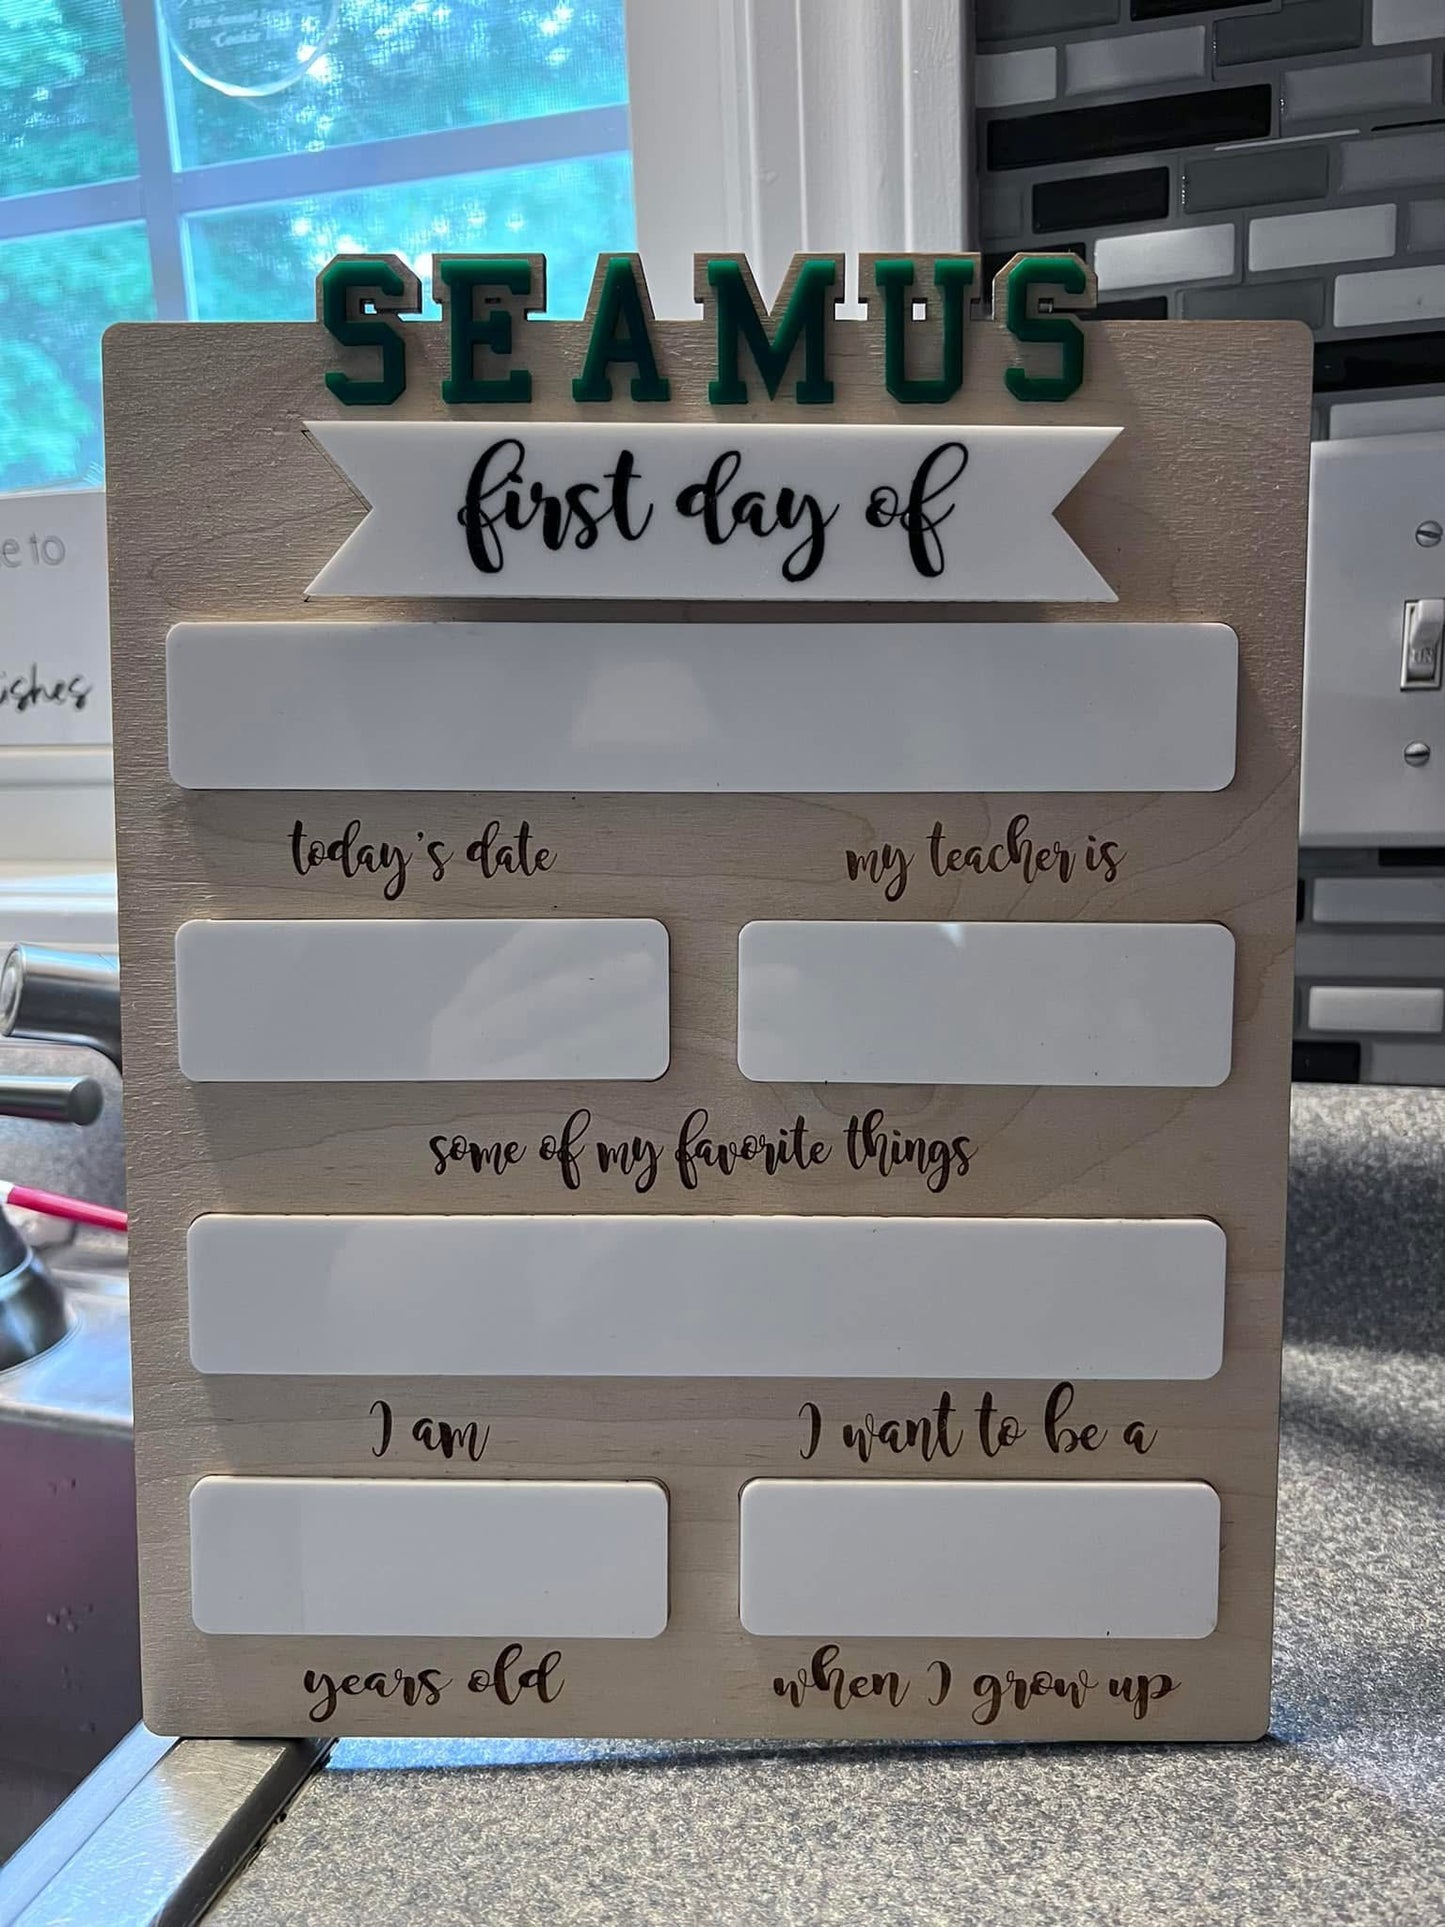 Cookie
SEAMUS
first day of
e to
ishes
today's date
my teacher is
some of my favorite things
I am
I want to be a
years old
when I grow up